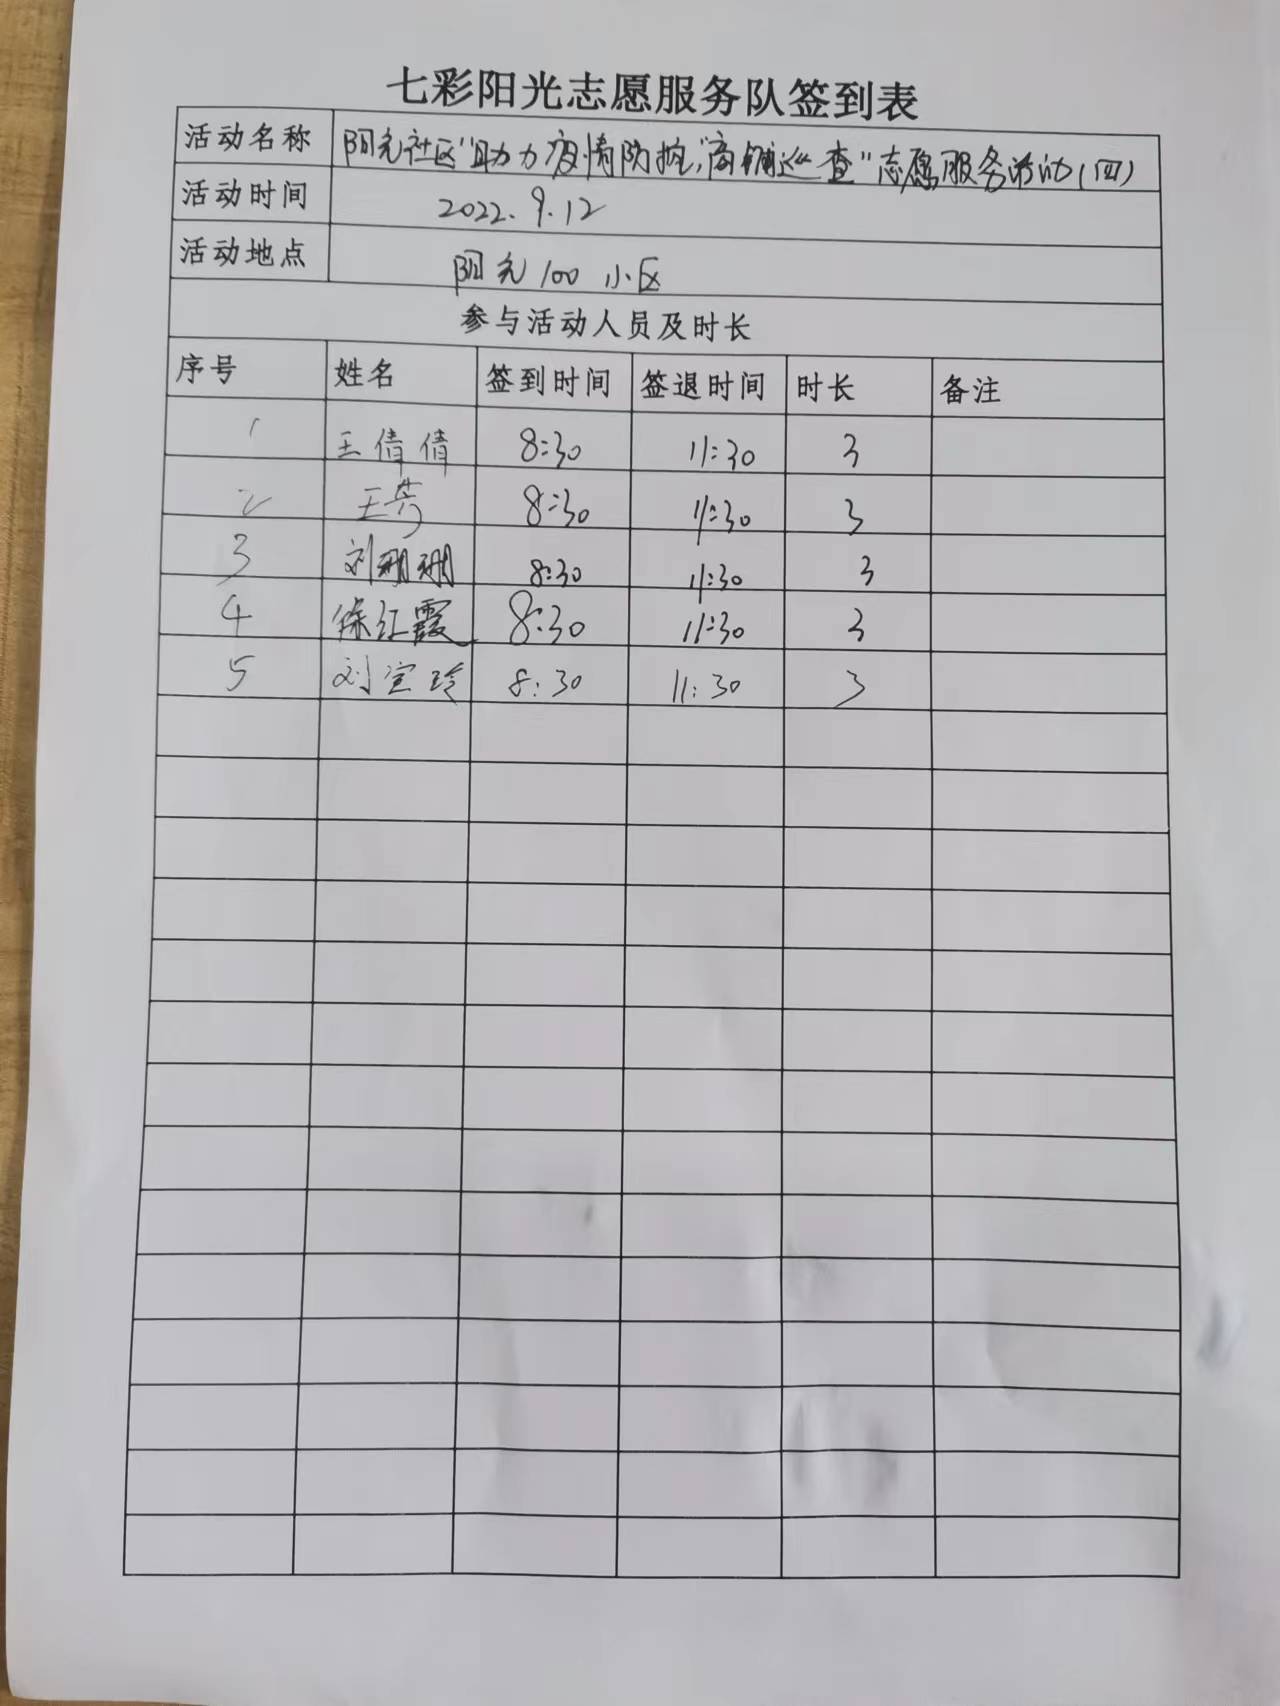 七彩阳光志愿服务队签到表
活动名称 阳光社区"助力疫情防控,商铺巡查"志愿服务活动(四)
活动时间 2022.9.12
活动地点 阳光100小区
参与活动人员及时长
序号 姓名 签到时间 签退时间 时长 备注
1 王倩倩 8:30 11:30 3
2 王芳 8:30 11:30 3
3 刘珊珊 8:30 11:30 3
4 徐红霞 8:30 11:30 3
5 刘宣玲 8:30 11:30 3